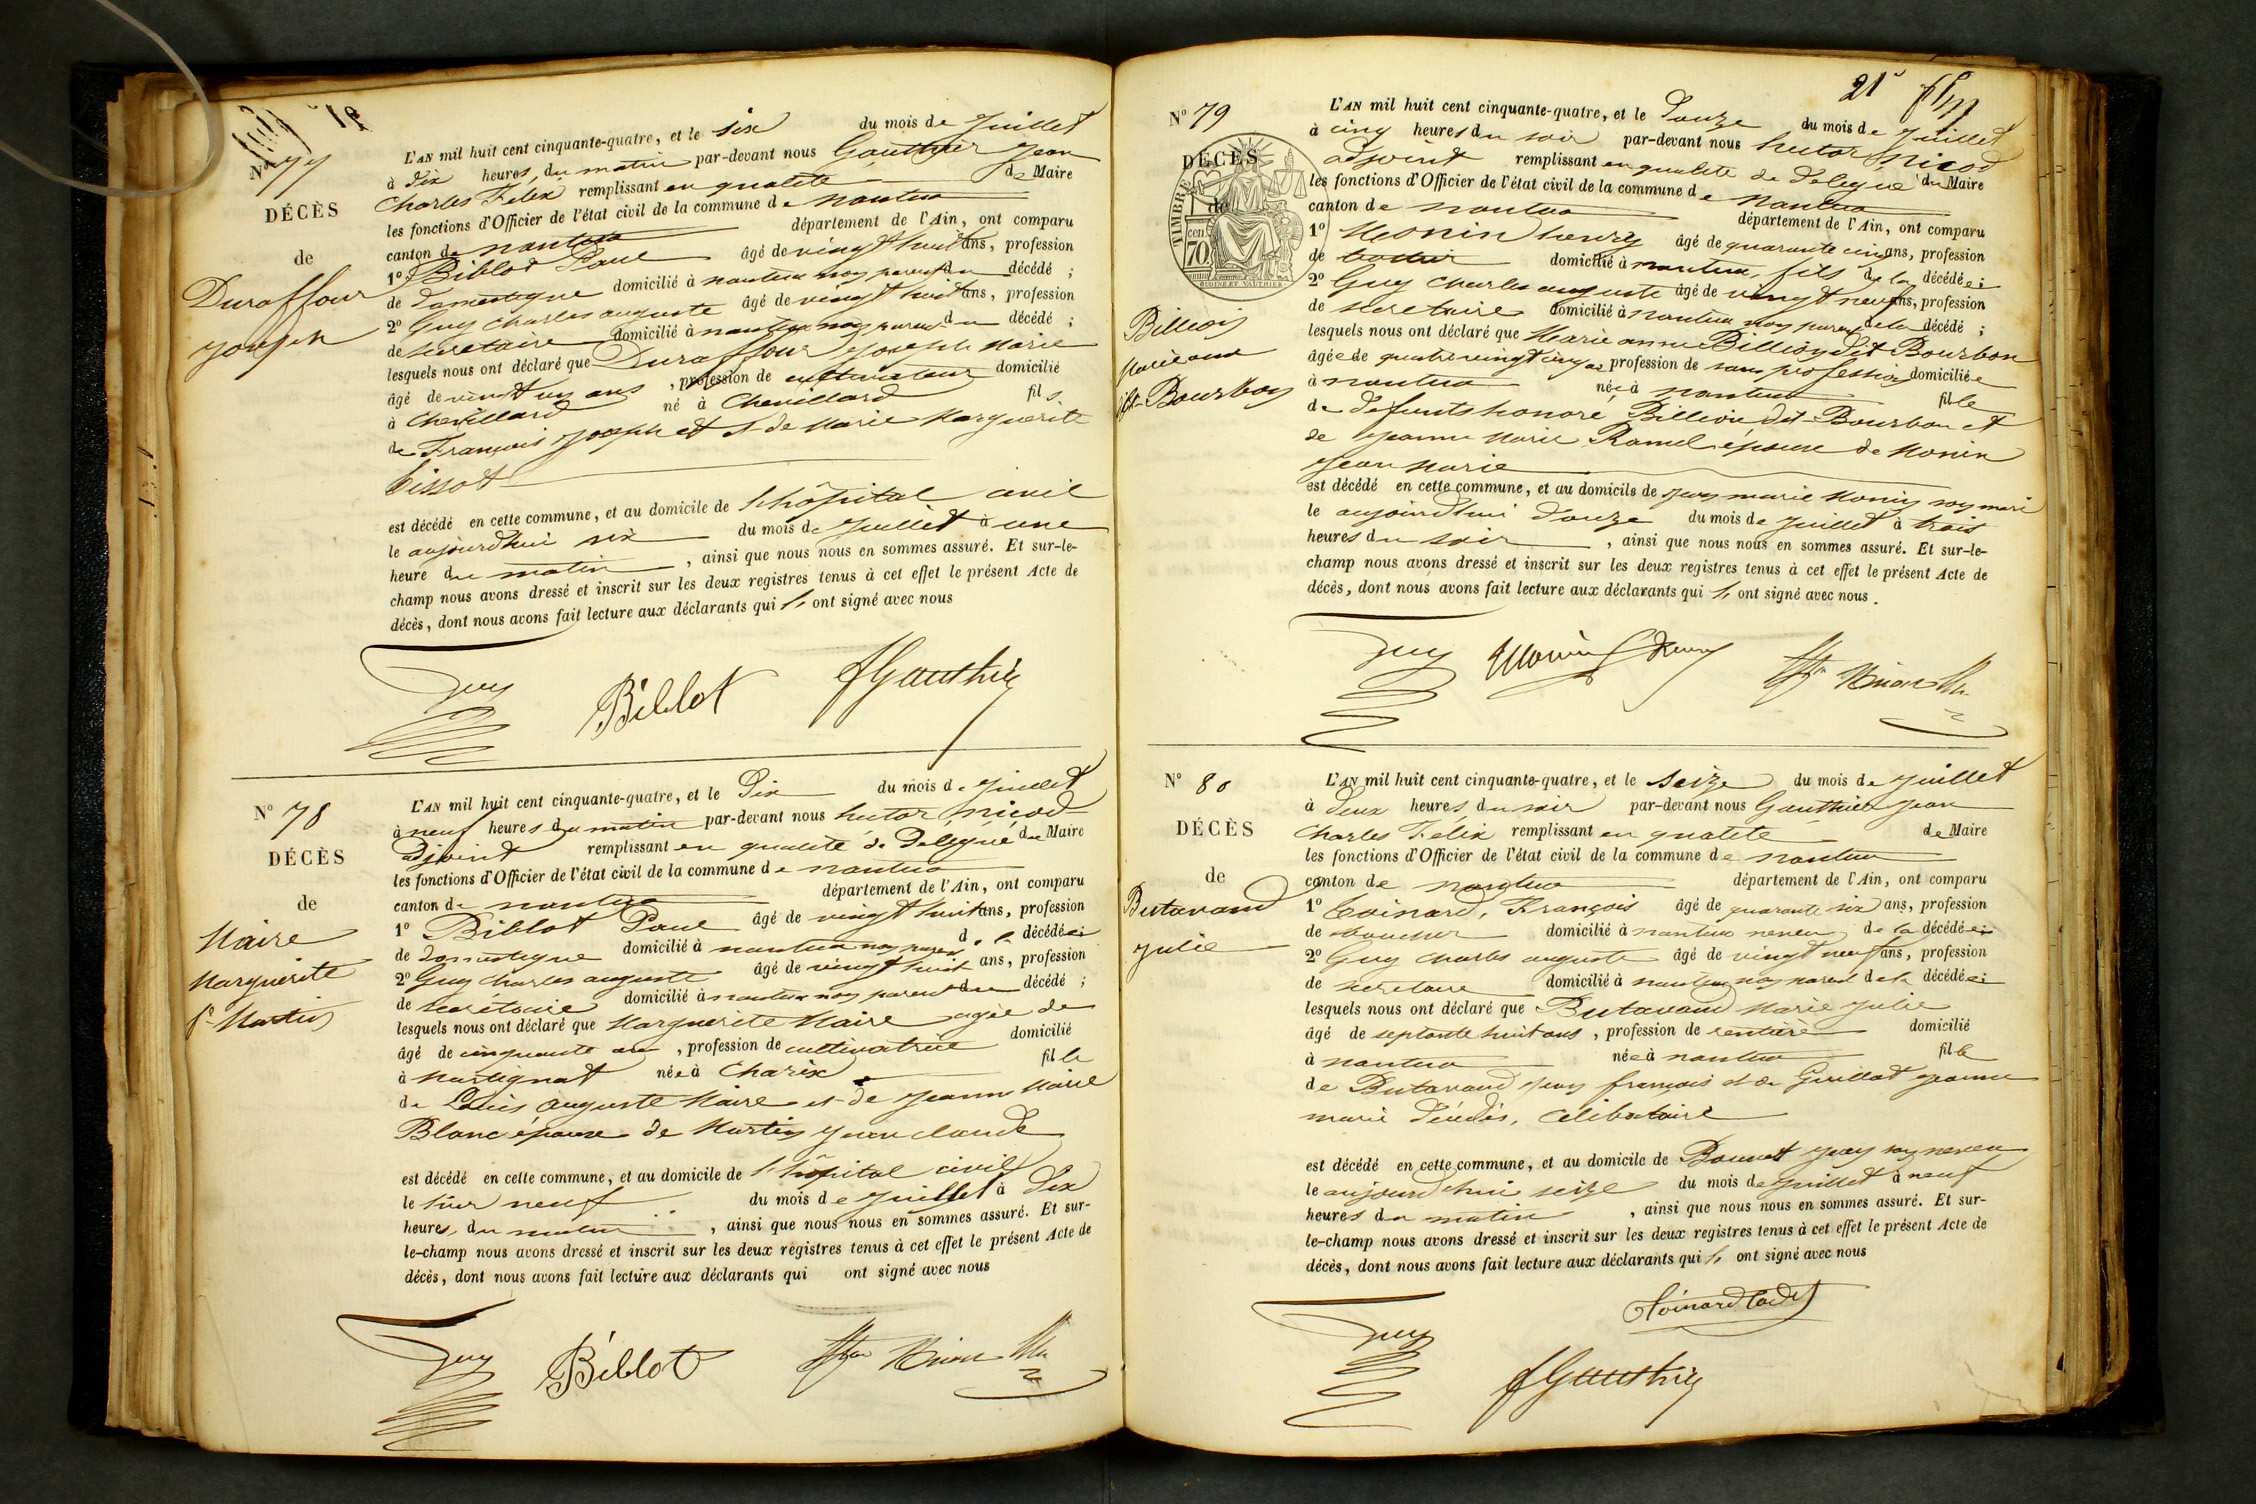 N° 77
DÉCÈS
de
Duraffour
Joseph
L'AN mil huit cent cinquante-quatre, et le six du mois de Juillet
à dix heures du matin par-devant nous Gauthier Jean
Charles Félix remplissant en qualité de Maire
les fonctions d'Officier de l'état civil de la commune de nantua
canton de nantua département de l'Ain, ont comparu
1° Biblot Paul âgé de vingt huit ans, profession
de domestique domicilié à nantua non parent du décédé ;
2° Guy Charles auguste âgé de vingt huit ans, profession
de secretaire domicilié à nantua non parent du décédé ;
lesquels nous ont déclaré que Duraffour Joseph Marie
âgé de vingt un ans, profession de cultivateur domicilié
à Chevillard né à Chevillard fils
de François Joseph et de Marie Marguerite
Tissot
est décédé en cette commune, et au domicile de l'hôpital civil
le aujourd'hui six du mois de Juillet à une
heure du matin, ainsi que nous nous en sommes assuré. Et sur-le-
champ nous avons dressé et inscrit sur les deux registres tenus à cet effet le présent Acte de
décès, dont nous avons fait lecture aux déclarants qui ont signé avec nous
Guy Biblot Gauthier
N° 78
DÉCÈS
de
Maire
Marguerite
fe Martin
L'AN mil huit cent cinquante-quatre, et le Dix du mois de Juillet
à neuf heures du matin par-devant nous hector nicod
adjoint remplissant en qualité de délégué du Maire
les fonctions d'Officier de l'état civil de la commune de nantua
canton de nantua département de l'Ain, ont comparu
1° Biblot Paul âgé de vingt huit ans, profession
de domestique domicilié à nantua non parent de la décédée
2° Guy Charles auguste âgé de vingt huit ans, profession
de secrétaire domicilié à nantua non parent du décédé ;
lesquels nous ont déclaré que Marguerite Maire agée de
âgé de cinquante ans, profession de cultivatrice domicilié
à Martignat née à Charix fille
de Louis auguste Maire et de Jeanne Marie
Blanc épouse de Martin Jean claude
est décédé en cette commune, et au domicile de l'hôpital civil
le hier neuf du mois de Juillet à dix
heures du matin, ainsi que nous nous en sommes assuré. Et sur-
le-champ nous avons dressé et inscrit sur les deux registres tenus à cet effet le présent Acte de
décès, dont nous avons fait lecture aux déclarants qui ont signé avec nous
Guy Biblot
21
N° 79
DÉCÈS
de
TIMBRE
cen 70
Billion
Marie anne
dit Bourbon
L'AN mil huit cent cinquante-quatre, et le Douze du mois de Juillet
à cinq heures du soir par-devant nous hector nicod
adjoint remplissant en qualité de délégué du Maire
les fonctions d'Officier de l'état civil de la commune de Nantua
canton de nantua département de l'Ain, ont comparu
1° Monin henry âgé de quarante cinq ans, profession
de domicilié à nantua, fils de la décédée ;
2° Guy Charles auguste âgé de vingt neuf ans, profession
de secretaire domicilié à nantua non parent de la décédé ;
lesquels nous ont déclaré que Marie anne Billion dit Bourbon
âgée de quatre vingt cinq ans, profession de sans profession domiciliée
à nantua née à nantua fille
de defunts honoré Billion dit Bourbon et
de Jeanne Marie Ramel épouse de Monin
Jean Marie
est décédé en cette commune, et au domicile de Jean marie Monin son mari
le aujourdhui douze du mois de Juillet à trois
heures du soir, ainsi que nous nous en sommes assuré. Et sur-le-
champ nous avons dressé et inscrit sur les deux registres tenus à cet effet le présent Acte de
décès, dont nous avons fait lecture aux déclarants qui ont signé avec nous.
Guy Monin henry
N° 80
DÉCÈS
de
Butavand
Julie
L'AN mil huit cent cinquante-quatre, et le seize du mois de Juillet
à deux heures du soir par-devant nous Gauthier Jean
Charles Félix remplissant en qualité de Maire
les fonctions d'Officier de l'état civil de la commune de nantua
canton de nantua département de l'Ain, ont comparu
1° Coinard, François âgé de quarante six ans, profession
de boucher domicilié à nantua neveu de la décédée
2° Guy Charles auguste âgé de vingt neuf ans, profession
de secretaire domicilié à nantua non parent de la décédée
lesquels nous ont déclaré que Butavand Marie Julie
âgé de septante huit ans, profession de rentière domicilié
à nantua née à nantua fille
de Butavand Jean françois et de Guillot Jeanne
marie décédés, célibataire
est décédé en cette commune, et au domicile de Bonnet Jean son neveu
le aujourd'hui seize du mois de Juillet à neuf
heures du matin, ainsi que nous nous en sommes assuré. Et sur-
le-champ nous avons dressé et inscrit sur les deux registres tenus à cet effet le présent Acte de
décès, dont nous avons fait lecture aux déclarants qui ont signé avec nous
Coinard Cadet
Guy Gauthier